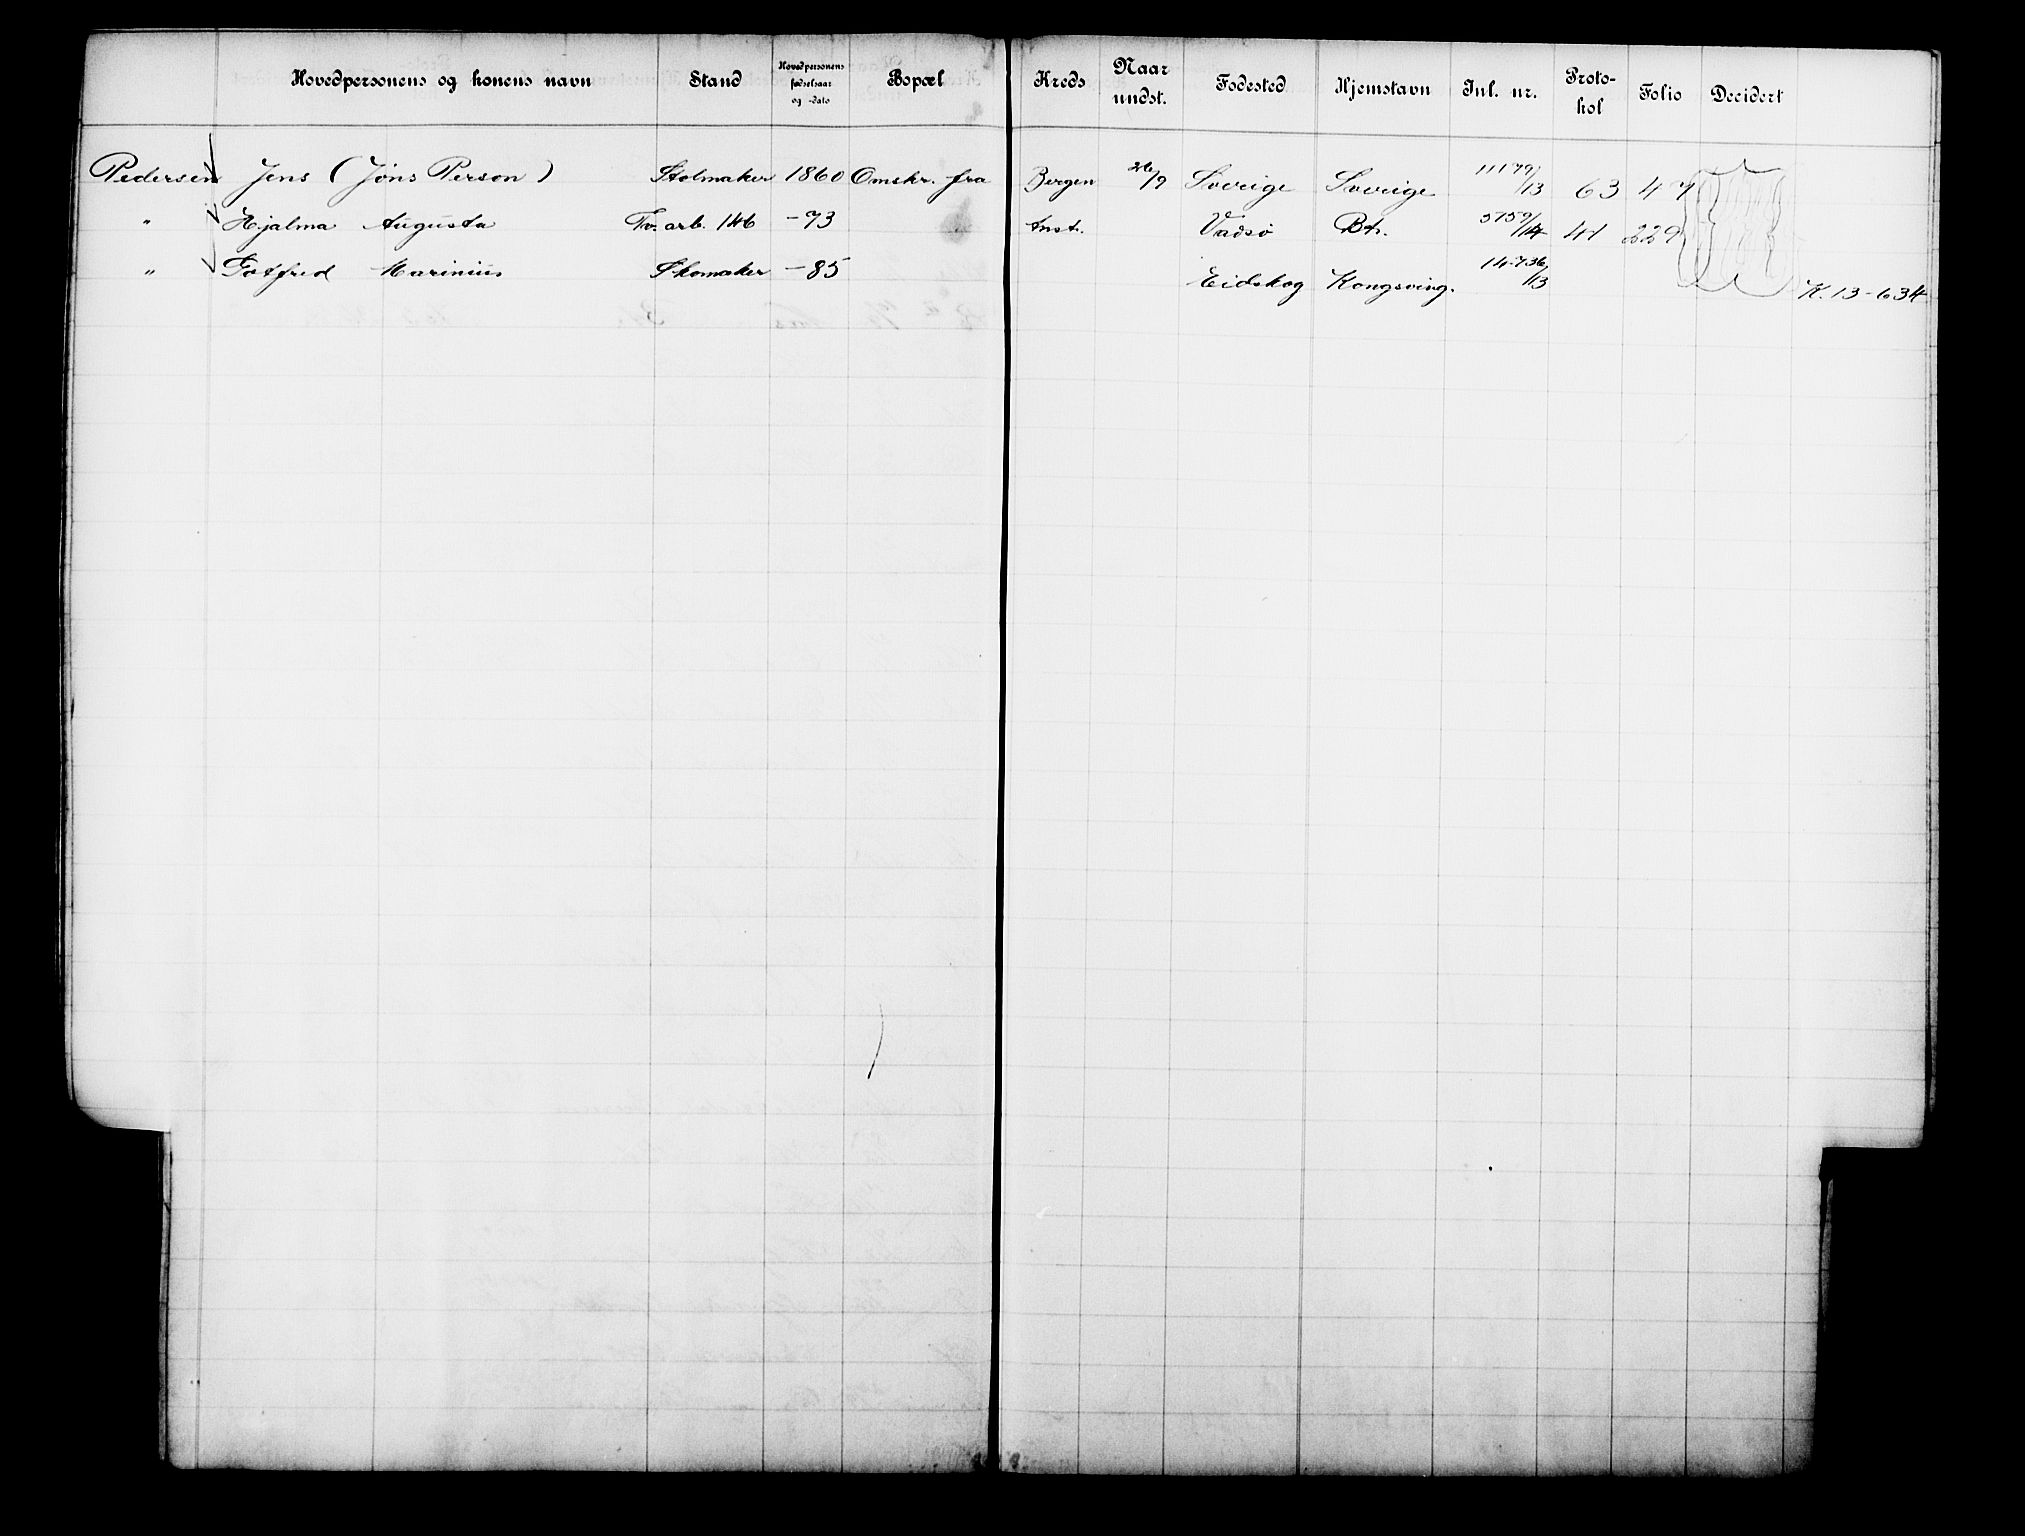 Hovedpersonens og konens navn Stand Hovedpersonens fødselsaar og -dato Bopæl Kreds Naar undst. Fødested Hjemstavn Inl. nr. Protokol Folio Decidert
Pedersen Jens (Jöns Person) Stolmaker 1860 Omskr. fra Bergen 26/9 Sverige Sverige 11179/13 63 47
" Hjalma Augusta Fv. arb. 146 -73 Anst. Vadsö Bh. 5759/14 41 229
" Gotfred Marinius Skomaker -85 Eidskog Kongsving. 14736/13 K. 13-634